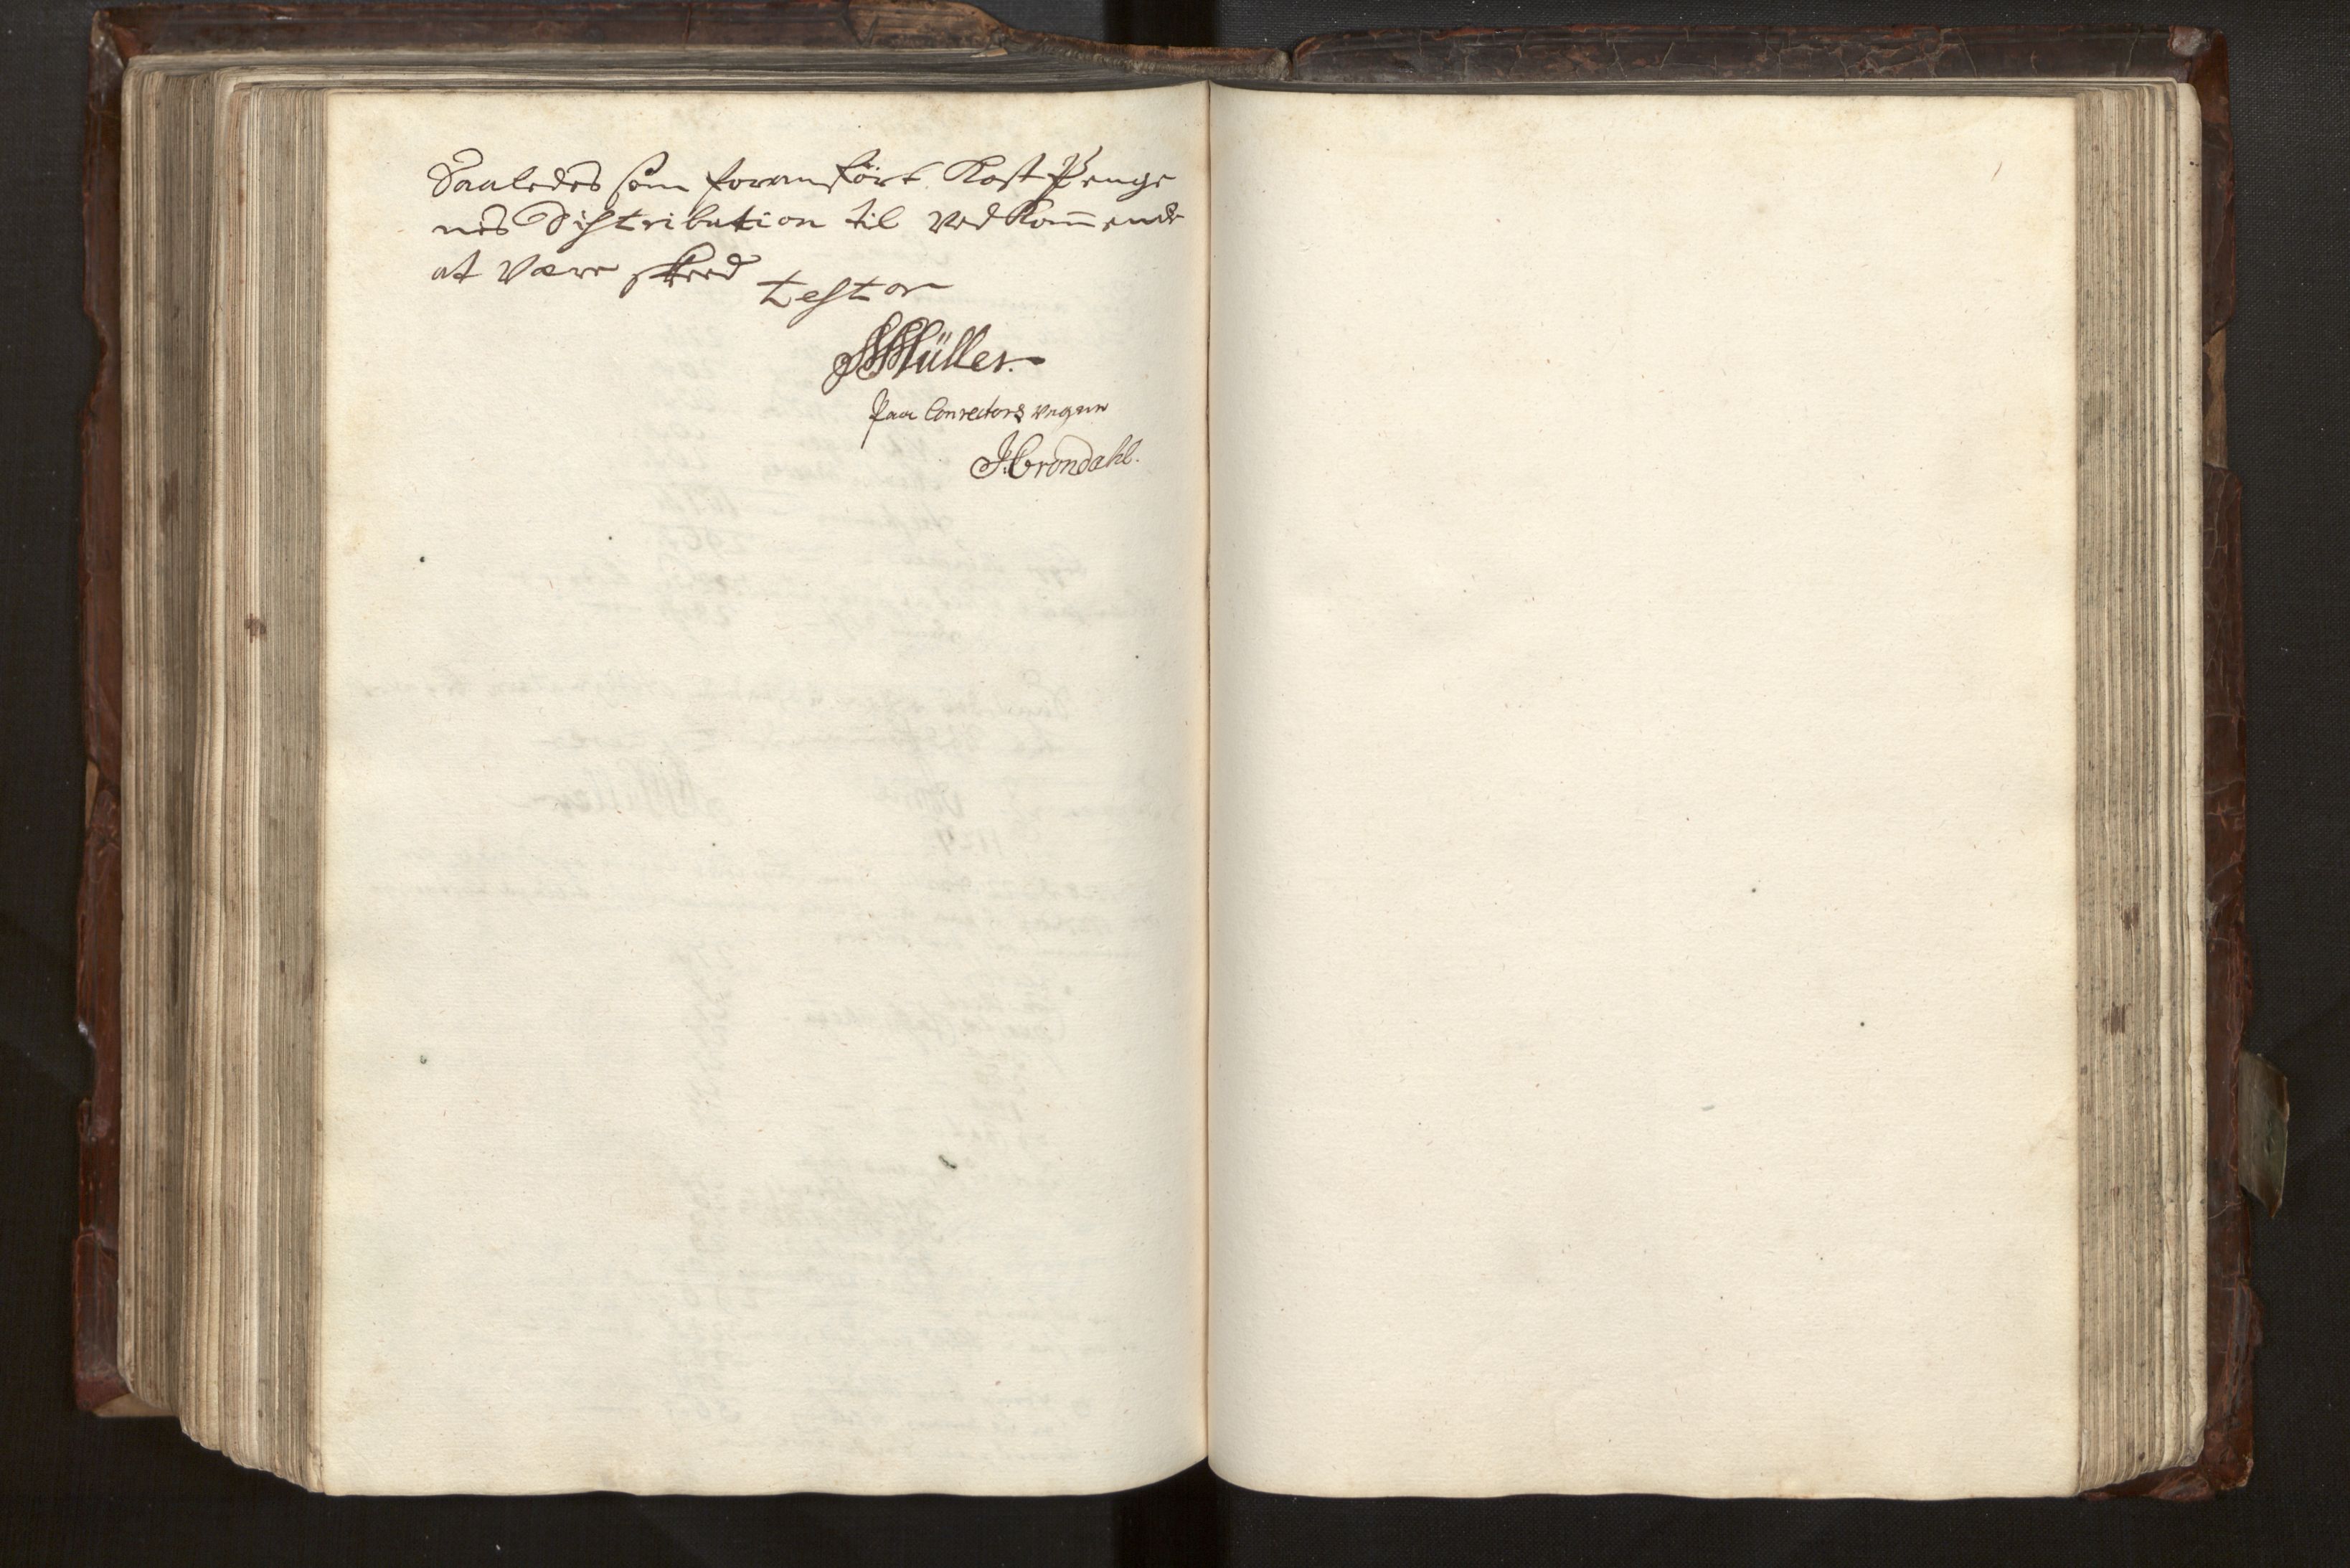 Saaledes som foranført Kost Penge
nes Distribution til Ved Kom̄ende
at Være skeed
testor
Müller.
Paa Conrectors vegne
J: Crondahl.